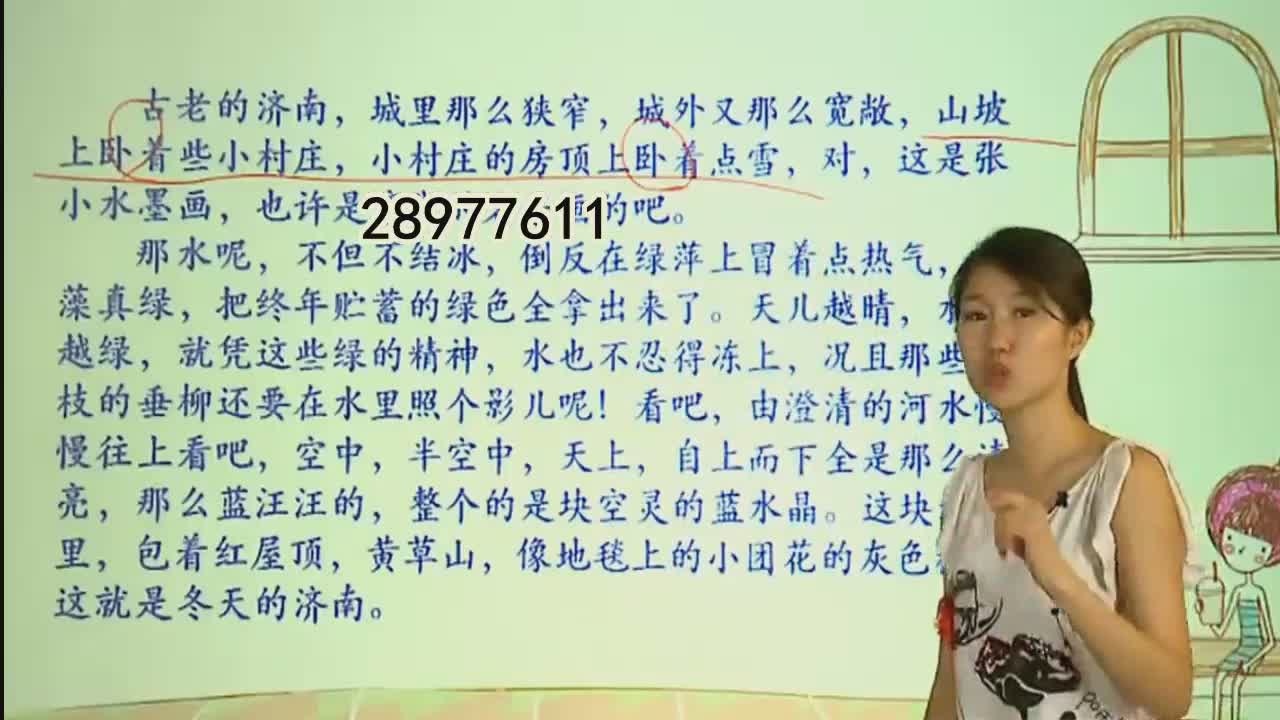 古老的济南，城里那么狭窄，城外又那么宽敞，山坡
上卧着些小村庄，小村庄的房顶上卧着点雪，对，这是张
小水墨画，也许是 的吧。
28977611
那水呢，不但不结冰，倒反在绿萍上冒着点热气，
藻真绿，把终年贮蓄的绿色全拿出来了。天儿越晴，水
越绿，就凭这些绿的精神，水也不忍得冻上，况且那些
枝的垂柳还要在水里照个影儿呢！看吧，由澄清的河水慢
慢往上看吧，空中，半空中，天上，自上而下全是那么清
亮，那么蓝汪汪的，整个的是块空灵的蓝水晶。这块
里，包着红屋顶，黄草山，像地毯上的小团花的灰色
这就是冬天的济南。